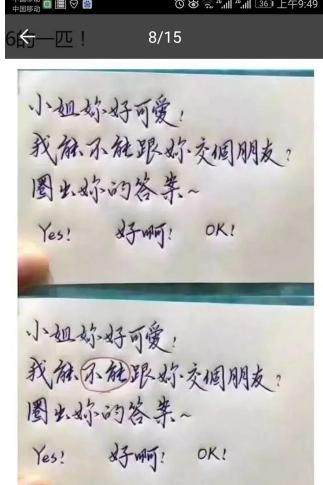 中国移动
36
上午9:49
6的一匹！
8/15
小姐妳好可愛！
我能不能跟妳交個朋友？
圈出妳的答案~
Yes! 好啊! OK!
小姐妳好可愛！
我能不能跟妳交個朋友？
圈出妳的答案~
Yes! 好啊! OK!